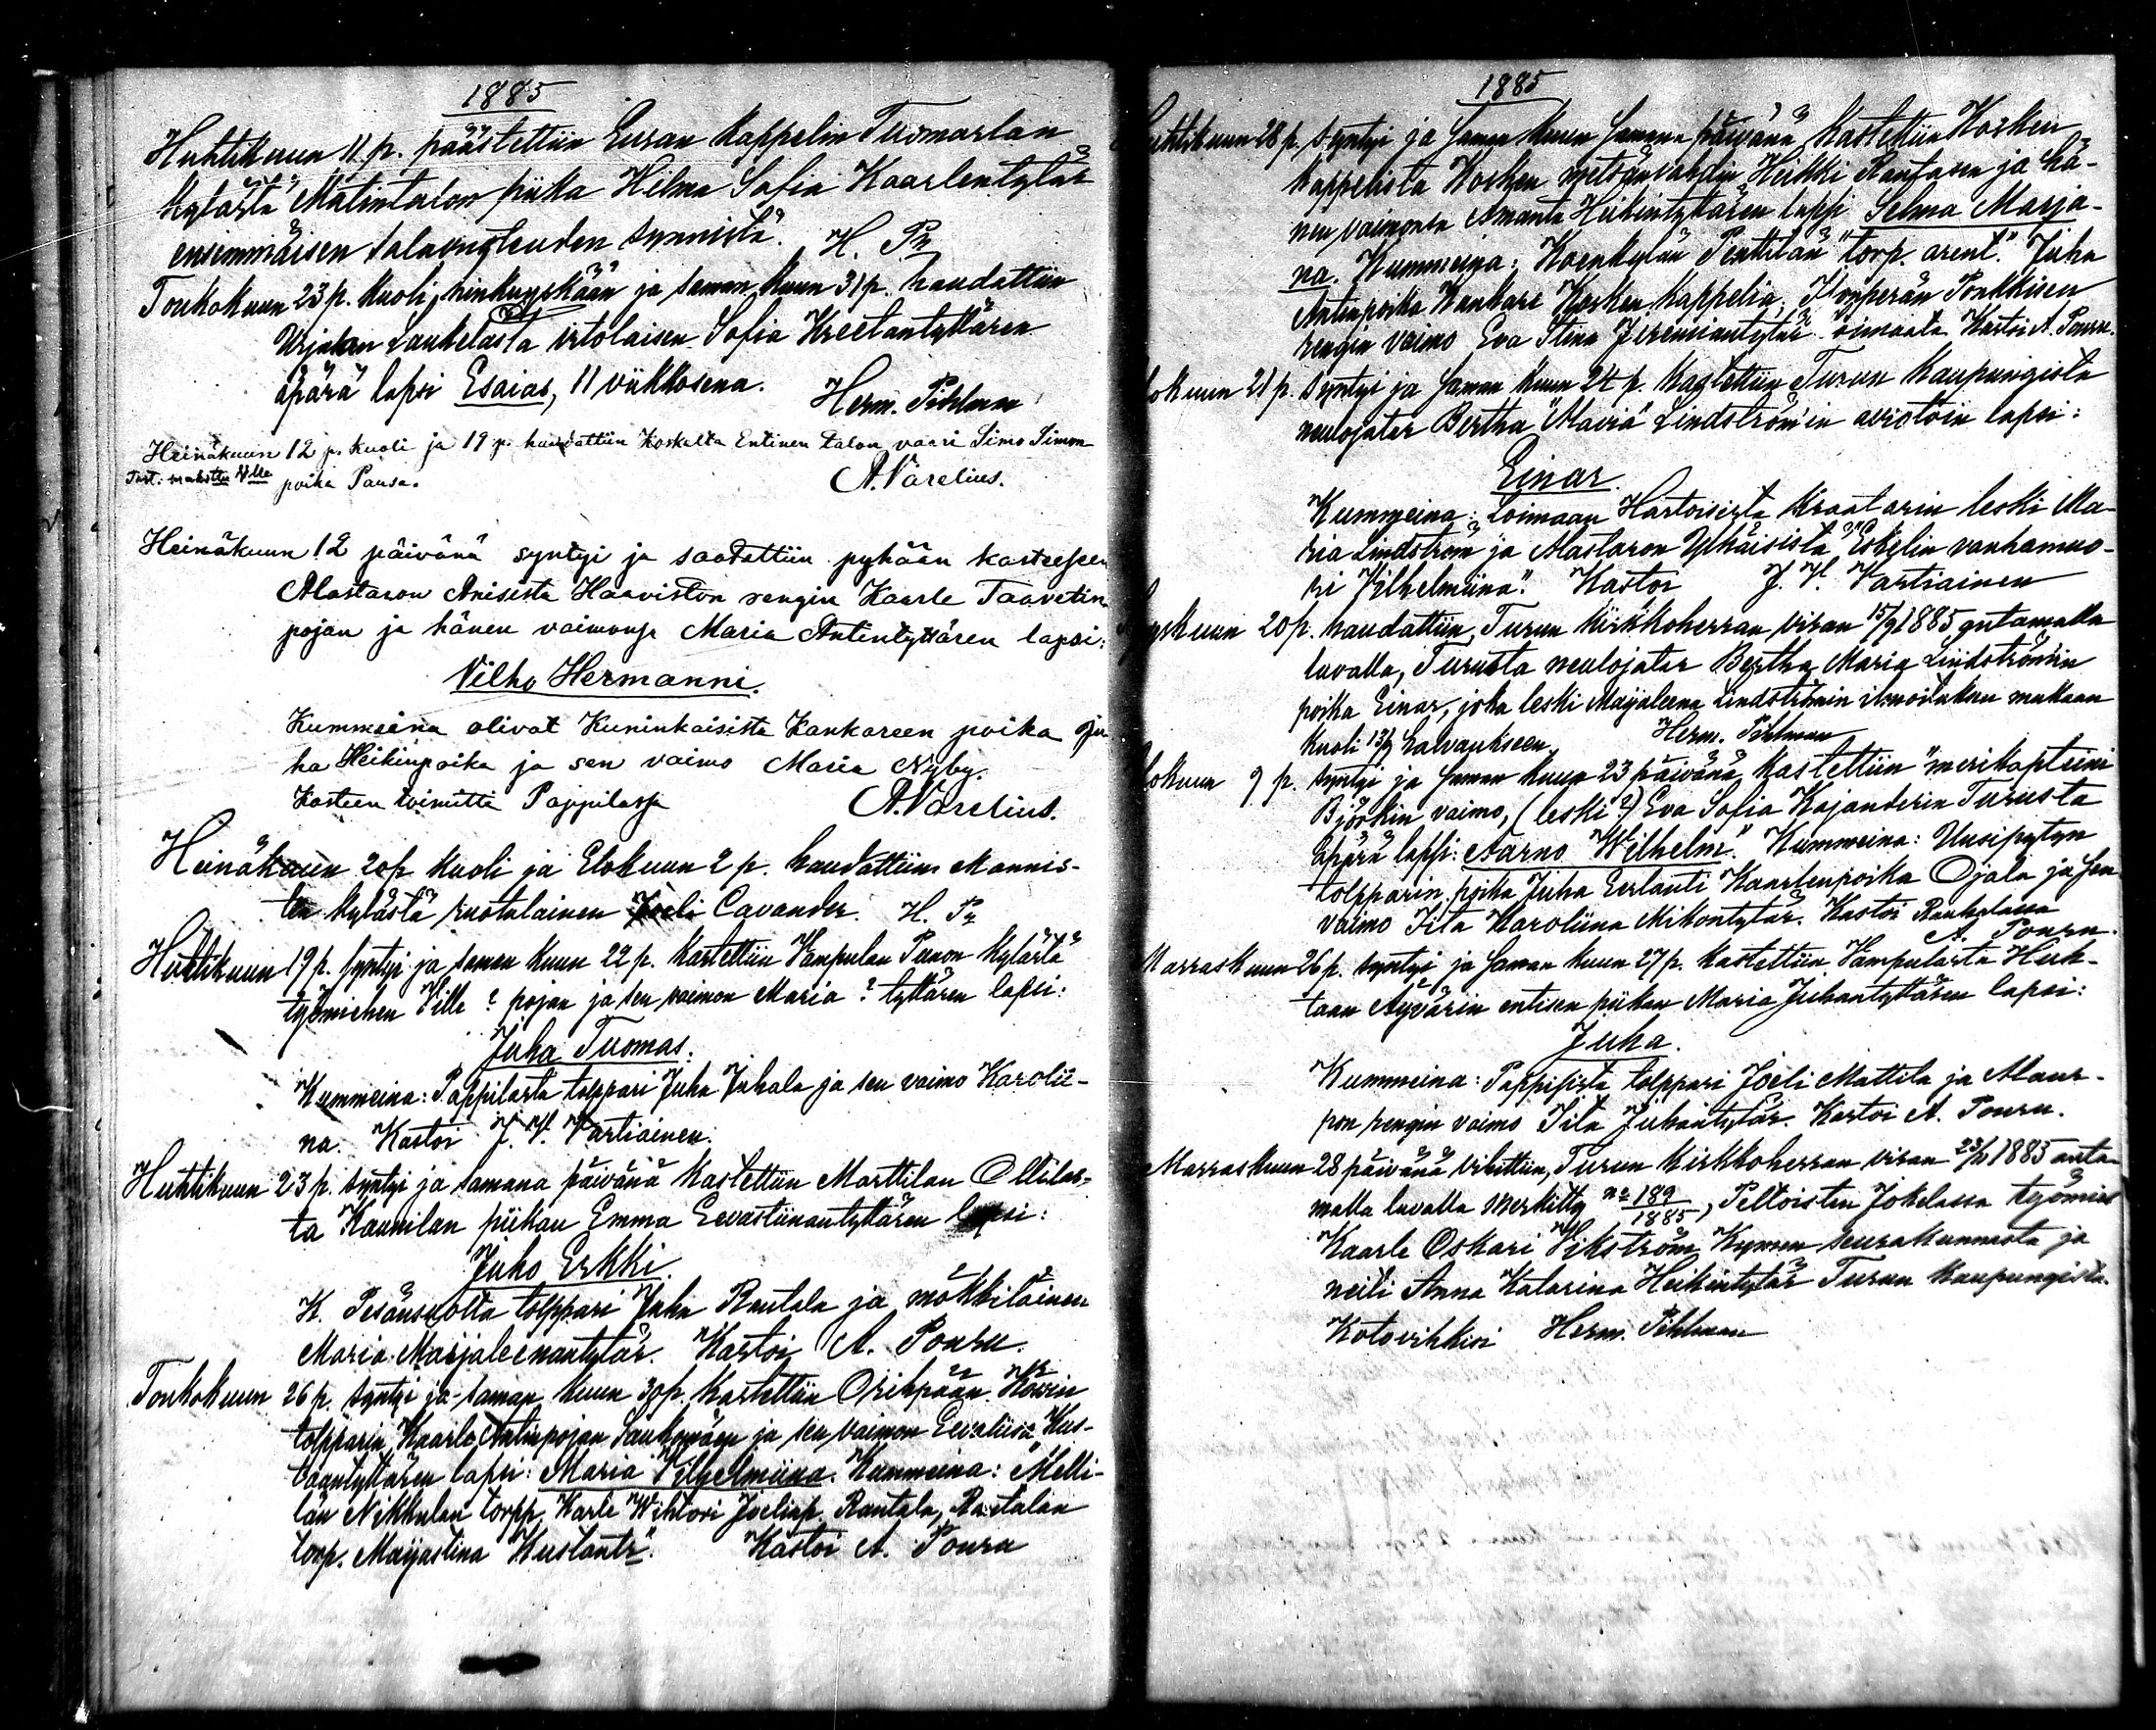 1885
Huhtikuun 11 p. päästettiin Euran kappelin Tuomarlan
kylästä Matintalon piika Hilma Sofia Kaarlentytär
ensimmäisen salavuoteuden synnistä. H. Pn
Toukokuun 23 p. kuoli hinkuyskään ja saman kuun 31 p. haudattiin
Urjalan Laukelasta irtolaisen Sofia Kreetantyttären
äpärä lapsi Esaias, 11 viikkosena. Herm. Pihlman
Heinäkuun 12 p. kuoli ja 19 p. haudattiin Koskelta Entinen talon vaari Simo Simon
poika Pausa. A. Varelius.
Heinäkuun 12 päivänä syntyi ja saatettiin pyhään kasteeseen
Alastaron Anisista Haaviston rengin Kaarle Taavetin
pojan ja hänen vaimonsa Maria Antintyttären lapsi:
Vilho Hermanni.
Kummeina olivat Kuninkaisista Kankareen poika Ju
ha Heikinpoika ja sen vaimo Maria Nyby.
Kasteen toimitti Pappilassa A. Varelius.
Heinäkuun 20 p. kuoli ja Elokuun 2 p. haudattiin Mannis-
ten kylästä ruotulainen Joeli Cavander. H. Pn
Huhtikuun 19 p. syntyi ja saman kuun 22 p. kastettiin Vampulan Punon kylästä
työmiehen Ville ? pojan ja sen vaimon Maria ? tyttären lapsi:
Juha Tuomas.
Kummeina: Pappilasta tolppari Juha Juhala ja sen vaimo Karolii-
na. Kastoi J. V. Vartiainen.
Huhtikuun 23 p. syntyi ja samana päivänä kastettiin Marttilan Ollilas-
ta Kaunilan piikan Emma Eevastiinantyttären lapsi:
Juho Erkki.
K. Pesänsuolta tolppari Juha Rautala ja mökkiläinen
Maria Maijaleenantytär. Kastoi A. Pouru.
Toukokuun 26 p. syntyi ja saman kuun 30 p. kastettiin Oripään
tolpparin Kaarle Antinpojan ja sen vaimon Eevaliisa Kus-
taantyttären lapsi: Maria Vilhelmiina. Kummeina: Melli-
län Nikkulan torpp. Karle Wihtori Joelinp. Rautala, Rautalan
torp. Maijastina Kustantr. Kastoi A. Pouru
1885
Huhtikuun 28 p. syntyi ja saman kuun samana päivänä kastettiin Kosken
kappelista Kosken metsänvahdin Heikki Rantasen ja hä-
nen vaimonsa Amanta Heikintyttären lapsi Selma Marja-
na. Kummeina: Koenkylän Penttilän "torp. arent." Juha
Antinpoika Kankare Kosken kappelia,
rengin vaimo Eva Stina Jeremiantytär Kastoi A. Pouru.
lokuun 21 p. syntyi ja saman kuun 24 p. kastettiin Turun kaupungista
neulojatar Bertha Maria Lindström'in aviotoin lapsi:
Einar.
Kummeina: Loimaan Hartoisista kraatarin leski Ma-
ria Lindström ja Alastaron Ylhäisistä Eskelin vanhamuo-
ri Vilhelmiina. Kastoi J. V. Vartiainen
yskuun 20 p. haudattiin, Turun kirkkoherran viran 15/9 1885 antamalla
luvalla, Turusta neulojatar Bertha Maria Lindströmin
poika Einar, joka leski Maijaleena Lindströmin ilmoituksen mukaan
kuoli 13/9 halvaukseen. Herm. Pihlman
lokuun 9 p. syntyi ja saman kuun 23 päivänä kastettiin "merikapteini
Björkin vaimo, (leski?) Eva Sofia Kajanderin Turusta
äpärä lapsi: Aarno Wilhelm. Kummeina: Uusipytyn
tolpparin poika Juha Eerlanti Kaarlenpoika Ojala ja sen
vaimo Iita Karoliina Mikontytär. Kastoi Rauhalassa
A. Pouru.
Marraskuun 26 p. syntyi ja saman kuun 27 p. kastettiin Vampulasta Huh-
taan Äyvärin entisen piikan Maria Juhantyttären lapsi:
Juha.
Kummeina: Pappisista tolppari Joeli Mattila ja Alaur-
pon rengin vaimo Iita Juhantytär. Kastoi A. Pouru.
Marraskuun 28 päivänä vihittiin, Turun kirkkoherran viran 23/11 1885 anta-
malla luvalla merkitty no 189/1885, Peltoisten Jokelassa työmies
Kaarle Oskari Vikström Kymen seurakunnasta ja
neiti Anna Katarina Heikintytär Turun kaupungista.
Kotovihkisi Herm. Pihlman